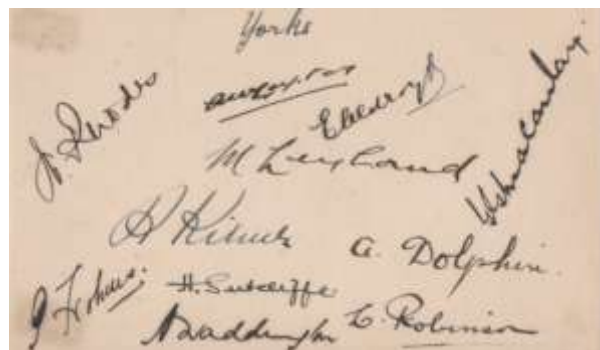 Yorks
W. Rhodes
E Oldroyd
M Leyland
R Kilner
G. Macaulay
A. Dolphin.
P Holmes.
H. Sutcliffe
A Waddington
E. Robinson